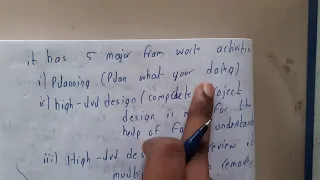 it has 5 major fram work activities
i) Planning (Plan what your doing)
ii) high-lvd design (complete project
design is for the
help of understand
iii) High-lvd des review it
mult